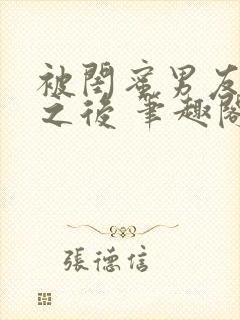 被閨蜜男友
之後 筆趣閣
張德信